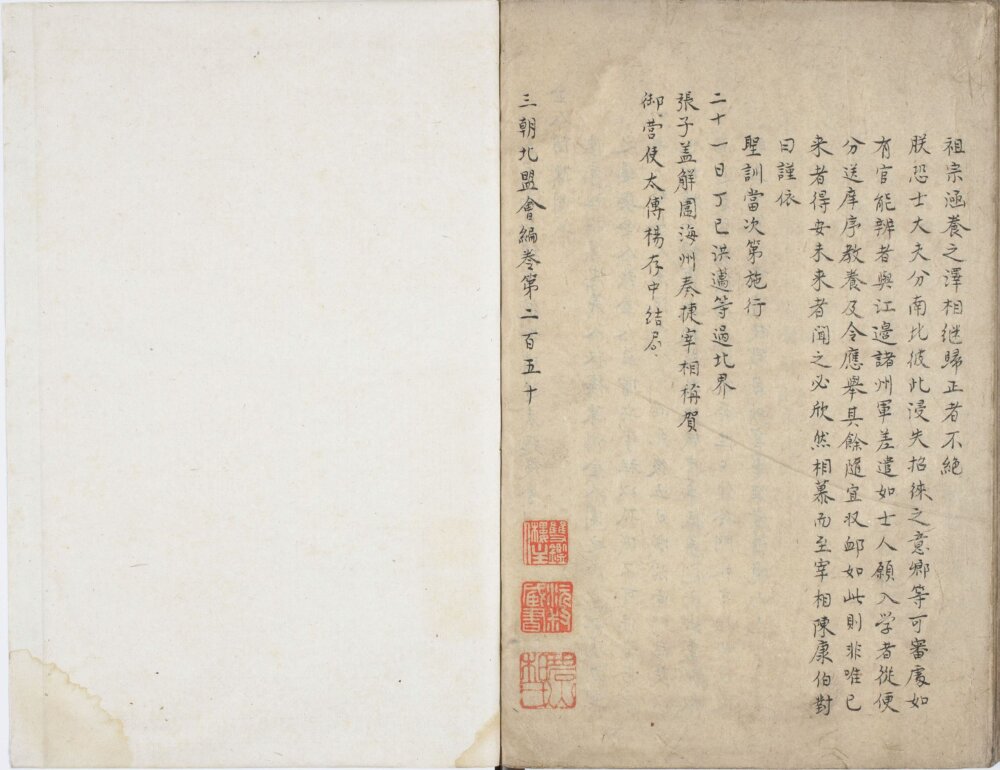 祖宗涵養之澤相継歸正者不絶
朕恐士大夫分南北彼此浸失招徠之意卿等可審處如
有官能辨者與江邉諸州軍差遣如士人願入学者從便
分送庠序教養及令應舉其餘隨宜収䘏如此則非唯已
来者得安未来者聞之必欣然相慕而至宰相陳康伯對
曰謹依
聖訓當次第施行
二十一日丁巳洪邁等過北界
張子盖解圍海州奏捷宰相稱賀
御營使太傅楊存中結局
三朝北盟會編卷第二百五十
雙鑑樓主
沅叔藏書